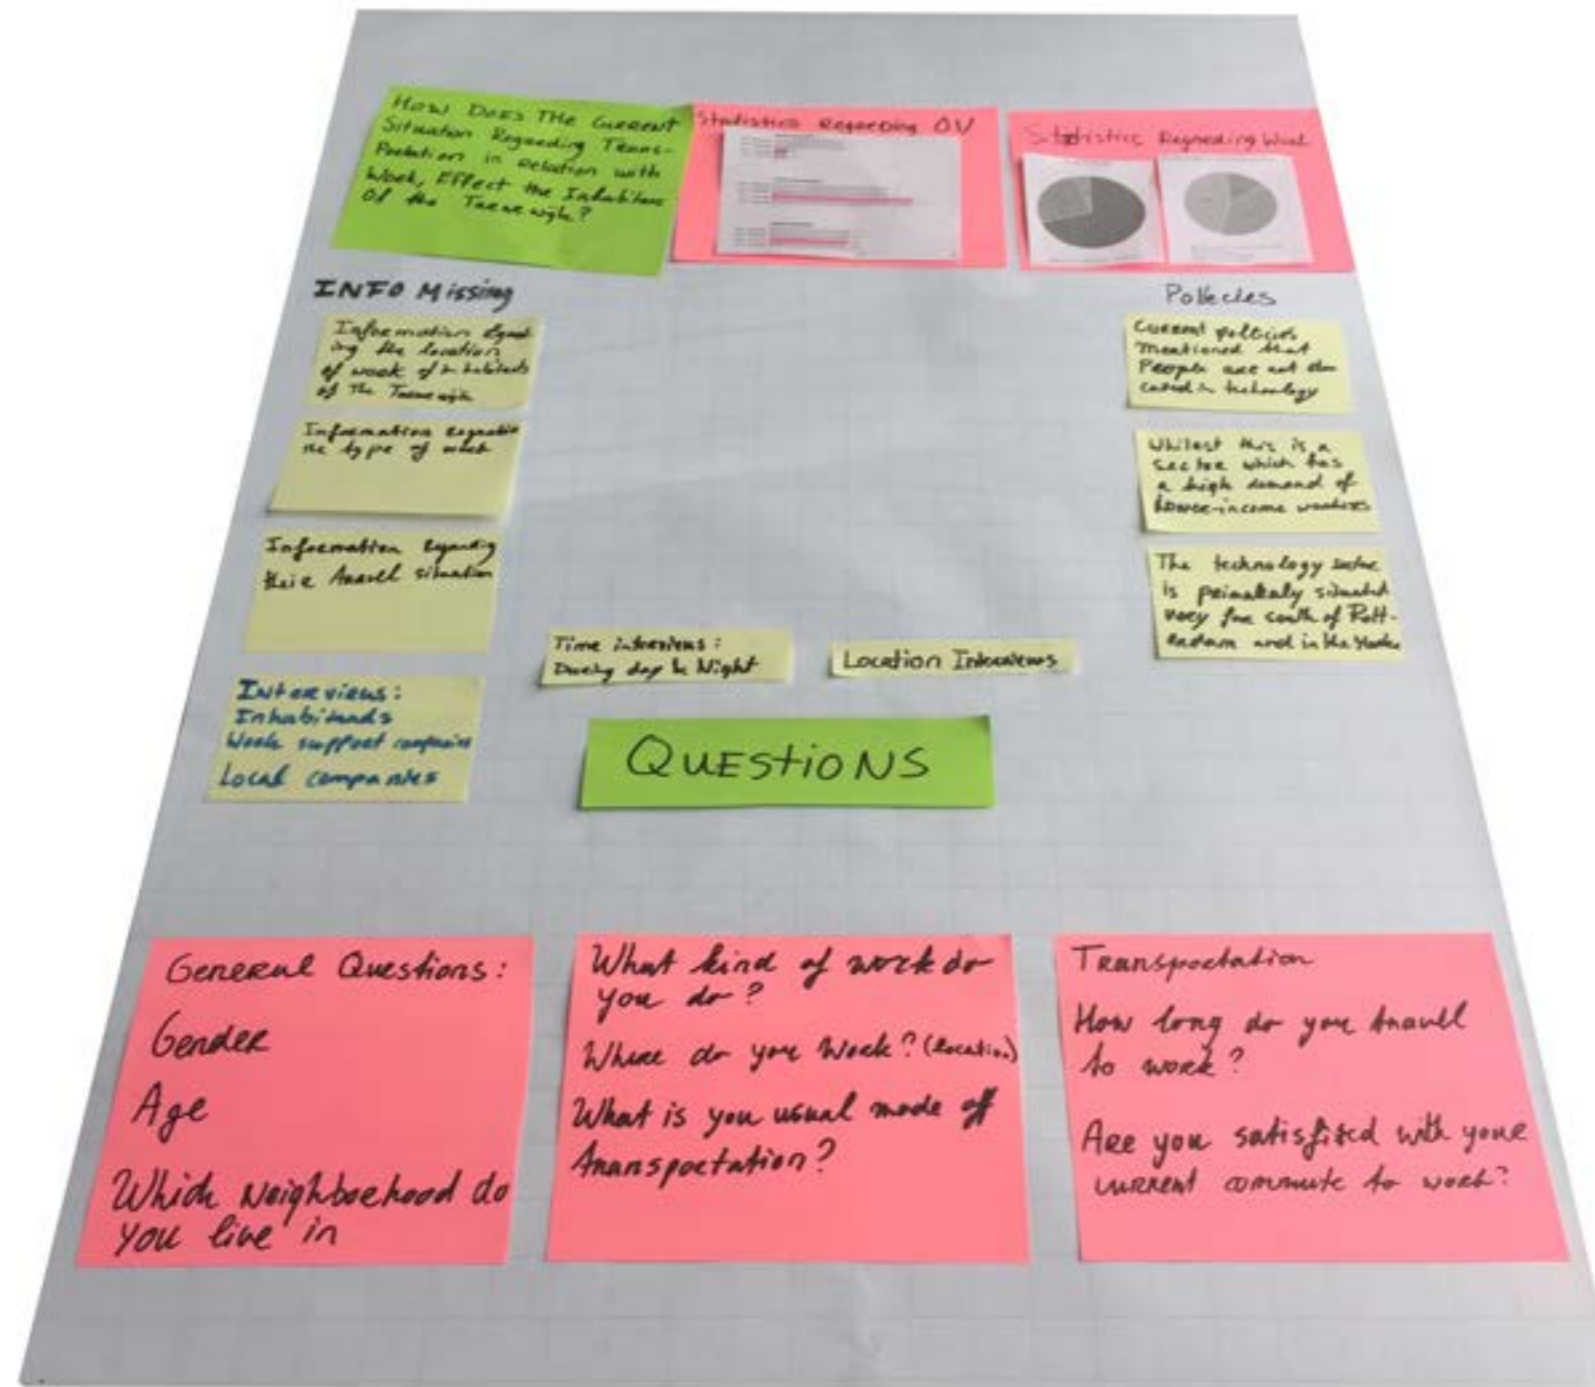 How Does The Current
Situation Regarding Trans-
Portation in Relation with
Work, Effect the Inhabitans
Of the Tarwewijk?
Statistics Regarding OV
Statistics Regarding Work
INFO Missing
Information Regard
ing the location
of work of inhabitants
of The Tarwewijk
Information regarding
the type of work
Information Regarding
their travel situation
Interviews:
Inhabitands
Work support companies
Local companies
Time interviews:
During day & Night
Location Interviews
Pollecies
Current policies
Mentioned that
People are not edu
cated in technology
Whilest this is a
sector which has
a high demand of
lower-income workers
The technology sector
is primaraly situated
very far south of Rott-
erdam and in the
QUEStioNS
General Questions:
Gender
Age
Which Neighborhood do
You live in
What kind of work do
you do?
Where do you Work? (location)
What is you usual mode off
transportation?
Transportation
How long do you travel
to work?
Are you satisfied with your
current commute to work?